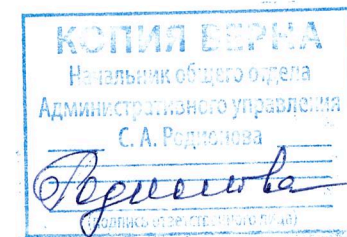 КОПИЯ ВЕРНА
Начальник общего отдела
Административного управления
С. А. Родионова
Родионова
(подпись ответственного лица)